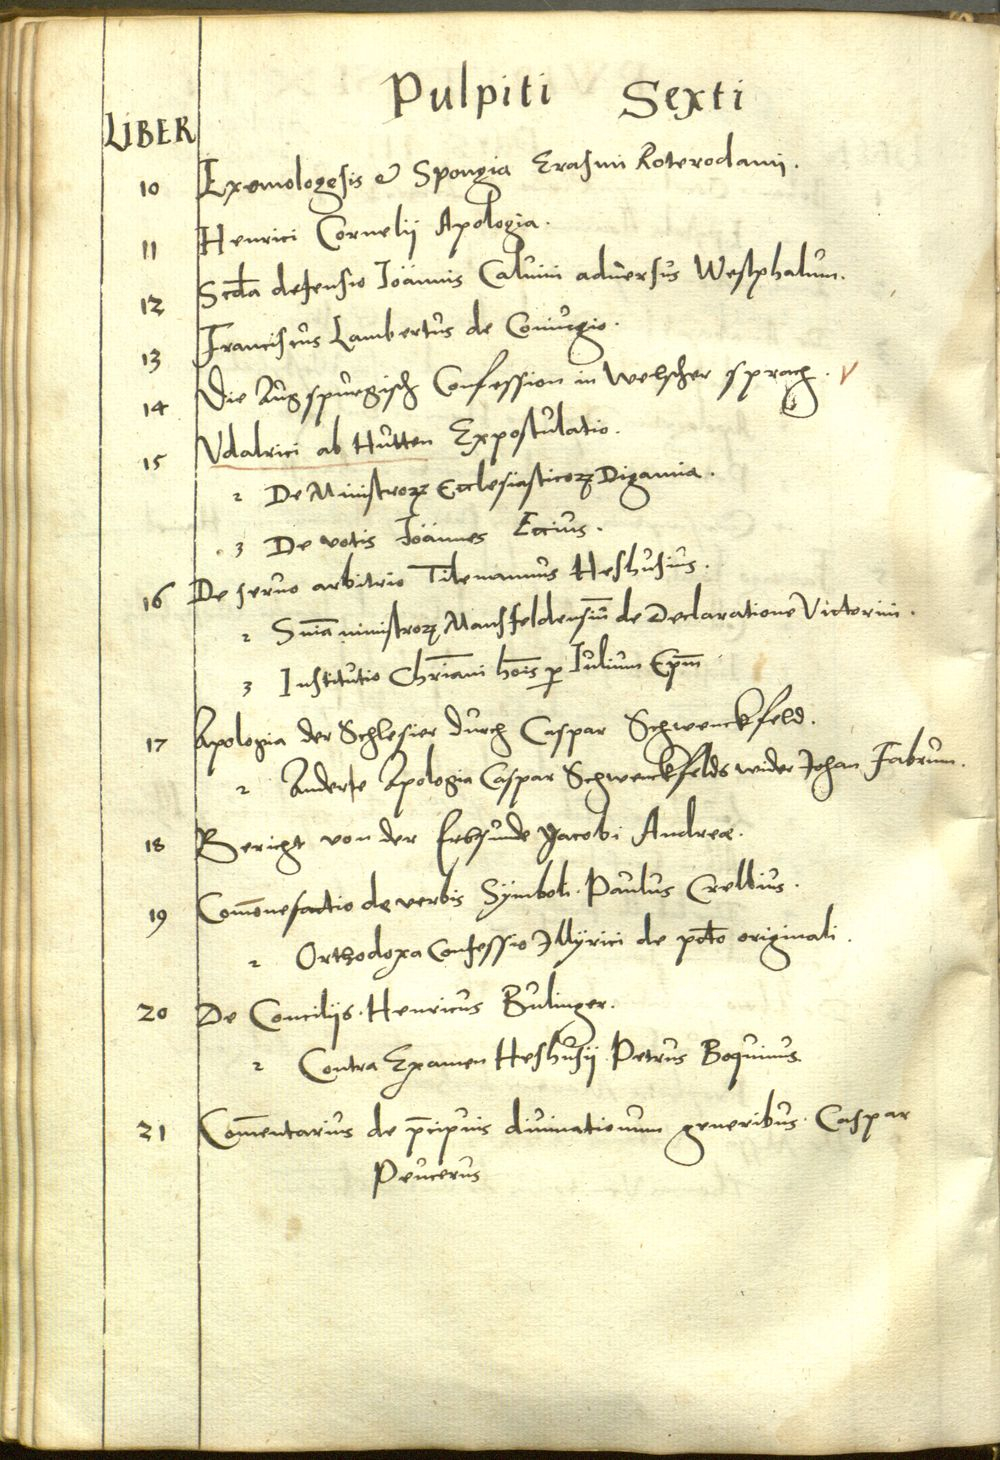 Pulpiti Sexti
LIBER
10 Exomologesis & Spongia Erasmi Roterodami.
11 Henrici Cornelii Apologia.
12 Scd̄a defensio Ioannis Caluini aduersus Westphalum.
13 Franciscus Lambertus de Coniugio.
14 Die Augspurgisch Confession in welscher sprach.
15 Vdalrici ab Hutten Expostulatio.
2 De Ministroꝝ Ecclesiasticoꝝ Digamia.
3 De votis Ioannes Eccius.
16 De seruo arbitrio Tilemannus Heshusius.
2 Snīa ministroꝝ Mansfeldensiū de Declaratione Victorini.
3 Institutio Chr̄iani hōis ꝑ Iulium Ep̄m
17 Apologia der Schlesier durch Caspar Schwenckfeld.
2 Anderte Apologia Caspar Schwenckfelds wider Johan Fabrum.
18 Bericht von der Erbsunde Jacobi Andreæ.
19 Com̄onefactio de verbis Symboli. Paulus Crellius.
2 Orthodoxa Confessio Illyrici de pctō originali.
20 De Conciliis. Henricus Bulinger.
2 Contra Examen Heshusii Petrus Boquinus
21 Com̄entarius de p̄cipuis diuinationum generibus. Caspar
Peucerus